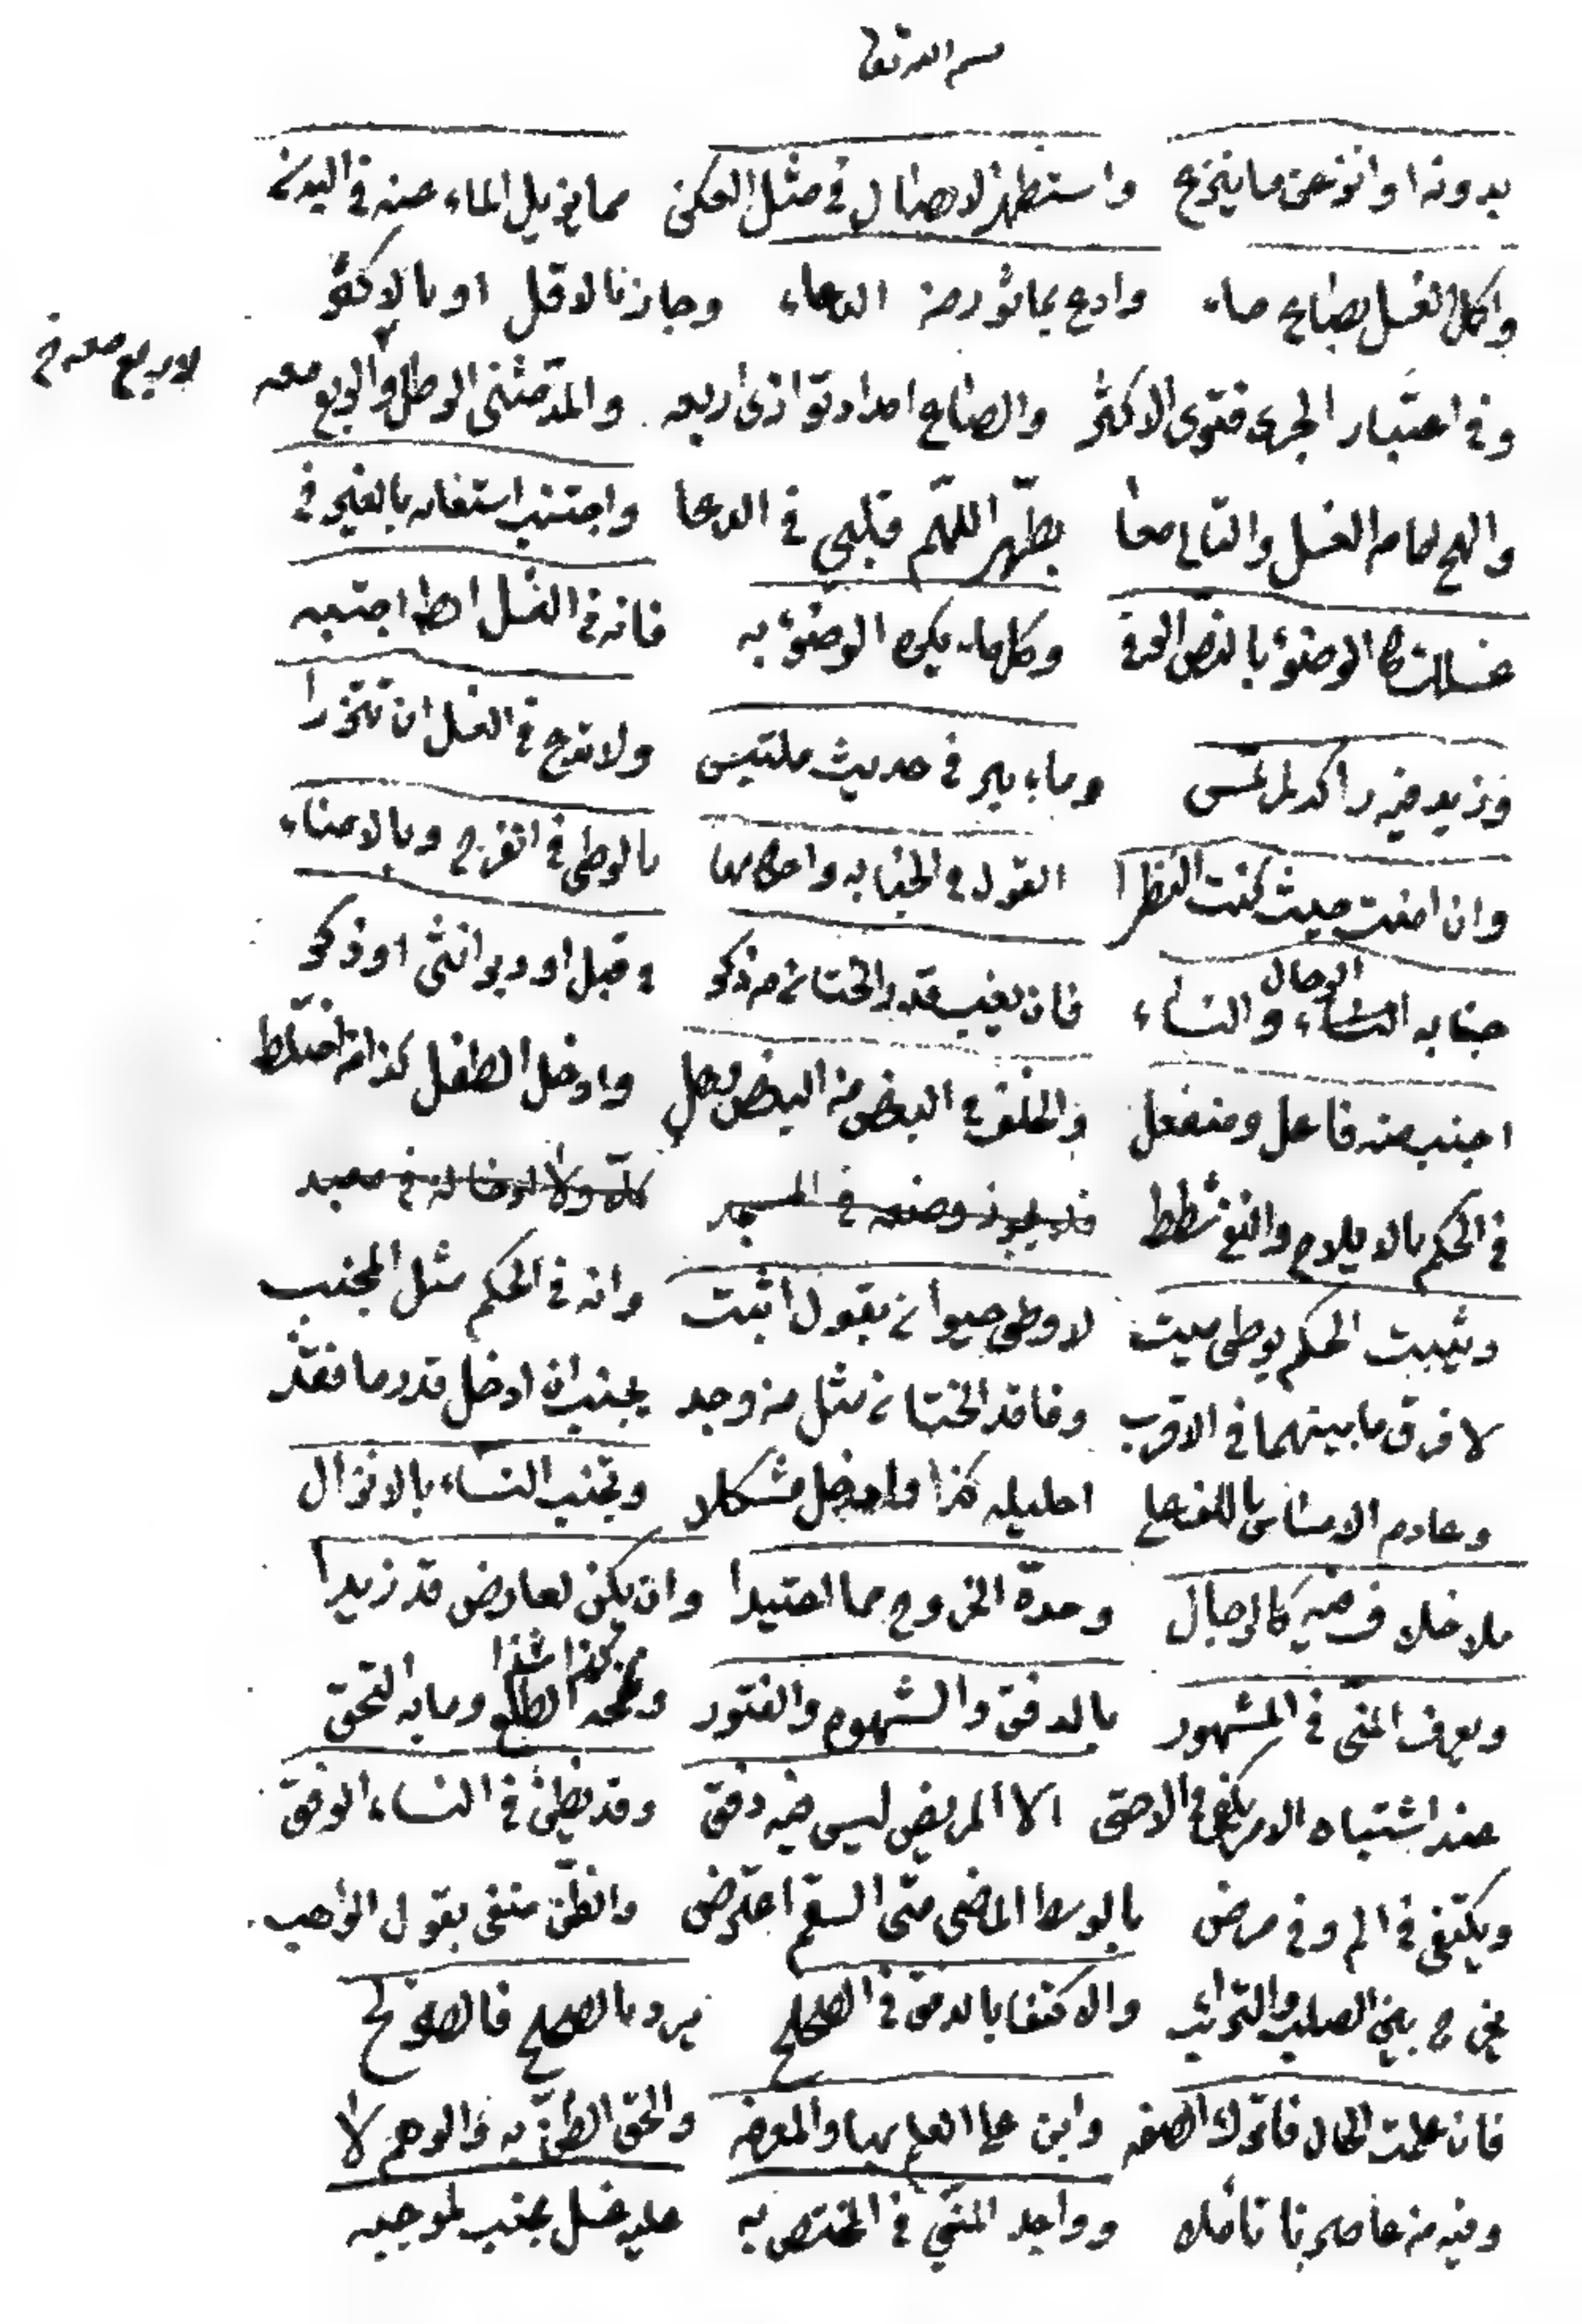 بسم الله تعالى
بدونه او انزعن ما ينزع واستظهر الايصال في مثل العكن مما يزيل الماء عنه في البدن
واكمل الغسل بصاع ماء وادع بماثور من الدعاء وجاز بالاقل او بالاكثر
وفي اعتبار الجري فتوى الاكثر والصاع امداد توازي اربعه والمد مثنى الرطل والربع معه
لا ربع معه خ
والهج امام الغسل والتالي معا بطهر اللهم قلبي في الدعا واجتنب استعانه بالغير في
غسلك كالوضوء بالنص الحفي وكل ماء يكره الوضوء به فانه في الغسل ايضا اجتنبه
وزيد فيه راكد لم يمس وماء بير في حديث ملتبس ولا تدع في الغسل ان تتزرا
وان امنت حيث كنت النظرا القول في الجنابه واحكامها بالوطي في الفرج وبالامناء
جنابه النساء الرجال والنساء فان يغيب قدر الختان من ذكر في قبل او دبر انثى او ذكر
اجنب منه فاعل ومنفعل والخلف في البعض من البعض وادخل الطفل كذا من اختلط
في الحكم بالايلاج والنفي شطط فلا يجوز وضعه في المسجد كلا ولا ادخاله في معبد
ويثبت الحكم بوطي ميت لا وطي حيوان بقول اثبت وانه في الحكم مثل المجنب
لا فرق ما بينهما في الاقرب وفاقد الختان مثل من وجد يجنب ان ادخل قدر ما فقد
وعادم احليله كذا وادخل مشكلا وتجنب النساء بالانزال
بلا خلاف فيه كالرجال وحدّه الخروج مما اعتيدا وان يكن لعارض قد زيدا
ويعرف المنيّ في المشهور بالدفق والشهوة والفتور وريحه الطلع كذا شذا وما به التحق
عند اشتباه الامر يكفي الا المريض ليس فيه دفق وقد يظن في النساء الرفق
ويكتفى في الم وفي مرض بالوسط الماضي متى السقم اعترض والظن منفي بقول الواهب
يخرج بين الصلب والترائب والاكتفا بالدفق في الصحيح يرد بالصحيح فالصريح
فان علمت الحال فاترك الصفه وابن على العلم بها والمعرفه والحق الظن به والوهم لا
وفيه من عاصرنا تاملا وواجد المنيّ في المختص به عليه غسل مجنب لموجبه